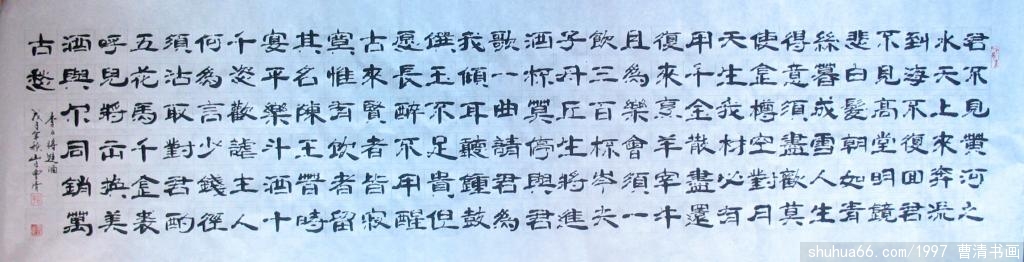 君不見黃河之
水天上來奔流
到海不復回君
不見高堂明鏡
悲白髮朝如青
絲暮成雪人生
得意須盡歡莫
使金樽空對月
天生我材必有
用千金散盡還
復來烹羊宰牛
且為樂會須一
飲三百杯岑夫
子丹丘生將進
酒杯莫停與君
歌一曲請君為
我傾耳聽鍾鼓
饌玉不足貴但
愿長醉不用醒
古來賢者皆寂
寞惟有飲者留
其名陳王昔時
宴平樂斗酒十
千恣歡謔主人
何為言少錢徑
須沽取對君酌
五花馬千金裘
呼兒將出換美
酒與尔同銷萬
古愁
李白將進酒
shuhua66.com/1997 曹清书画